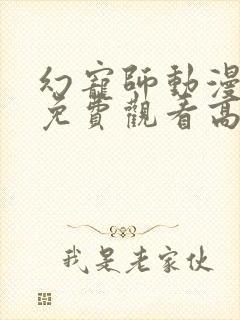 幻寵師動漫
免費觀看高
我是老家伙